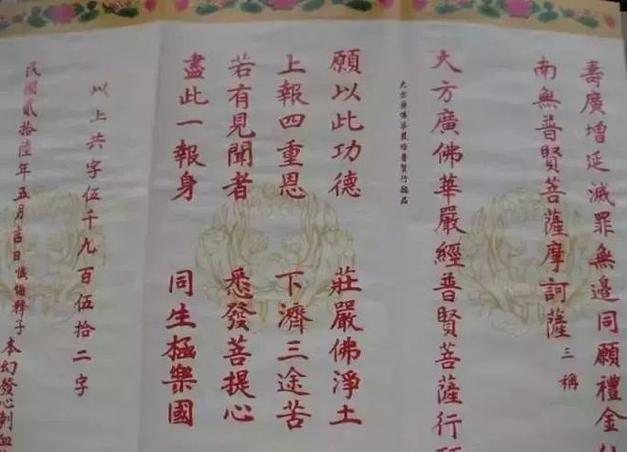 壽廣增延滅罪無邊同願禮金
南無普賢菩薩摩訶薩 三稱
大方廣佛華嚴經普賢菩薩行
大方廣佛華嚴經普賢行願品
願以此功德 莊嚴佛淨土
上報四重恩 下濟三途苦
若有見聞者 悉發菩提心
盡此一報身 同生極樂國
以上共字伍千九百伍拾二字
民國貳拾陸年五月吉日懺悔釋子本幻發心刺血